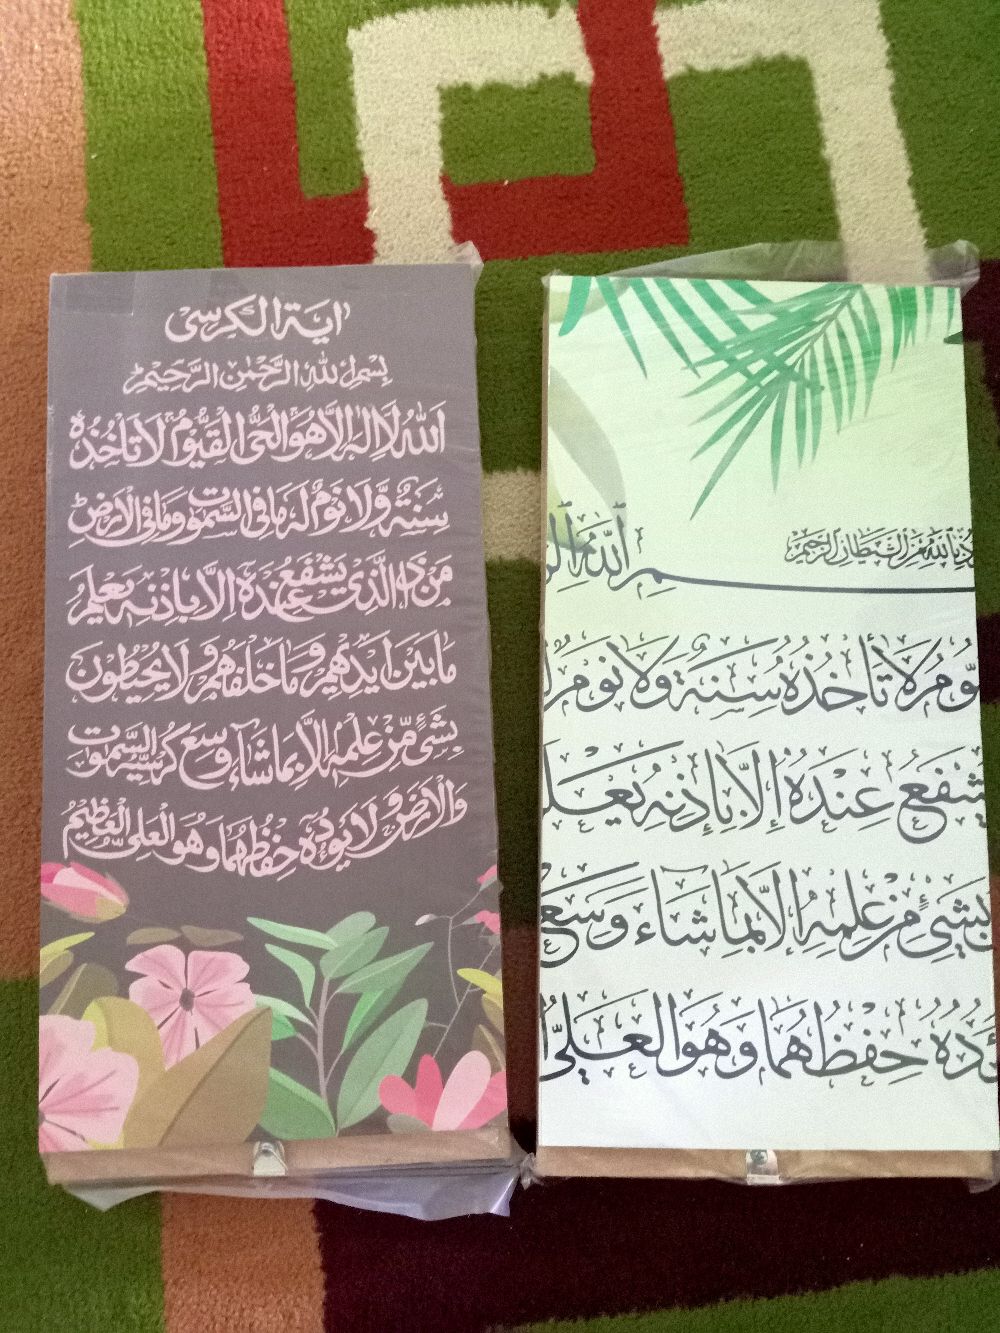 اٰية الكرسى
بِسْمِ اللهِ الرَّحْمٰنِ الرَّحِيْمِ
اَللهُ لَا اِلٰهَ اِلَّا هُوَ الْحَيُّ الْقَيُّوْمُ لَا تَأْخُذُهُ
سِنَةٌ وَّلَا نَوْمٌ لَهُ مَا فِى السَّمٰوٰتِ وَمَا فِى الْاَرْضِ
مَنْ ذَا الَّذِىْ يَشْفَعُ عِنْدَهٗ اِلَّا بِاِذْنِهٖ يَعْلَمُ
مَا بَيْنَ اَيْدِيْهِمْ وَمَا خَلْفَهُمْ وَلَا يُحِيْطُوْنَ
بِشَىْءٍ مِّنْ عِلْمِهٖ اِلَّا بِمَا شَاءَ وَسِعَ كُرْسِيُّهُ السَّمٰوٰتِ
وَالْاَرْضَ وَلَا يَـُٔوْدُهٗ حِفْظُهُمَا وَهُوَ الْعَلِىُّ الْعَظِيْمُ
بِاللّٰهِ مِنَ الشَّيْطَانِ الرَّجِيْمِ
ـمِ اللّٰهِ
ـوْمُ لَا تَأْخُذُهُ سِنَةٌ وَلَا نَوْمٌ
ـشْفَعُ عِنْدَهُ إِلَّا بِإِذْنِهِ يَعْلَـ
بِشَيْءٍ مِنْ عِلْمِهِ إِلَّا بِمَا شَاءَ وَسِعَ
ـُٔودُهُ حِفْظُهُمَا وَهُوَ الْعَلِيُّ